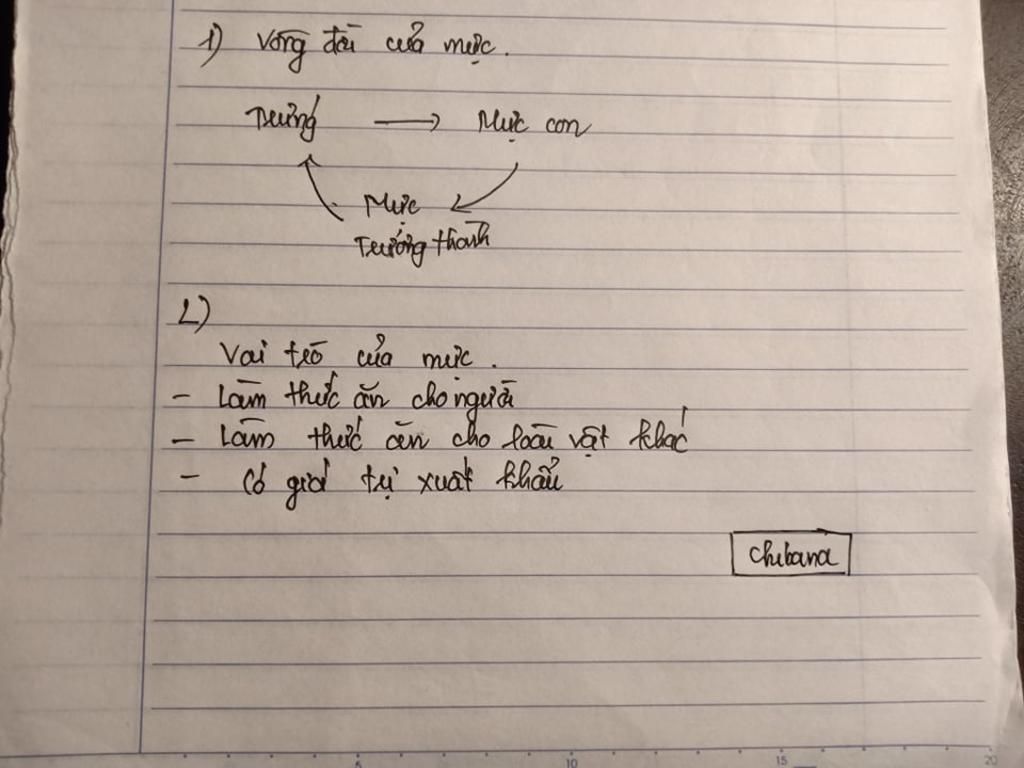 1) Vòng đời của mực.
Trứng → Mực con
Mực
Trưởng thành
2)
Vai trò của mực.
- Làm thức ăn cho người
- Làm thức ăn cho loài vật khác
- Có giá trị xuất khẩu
Chibana
5 10 15 20